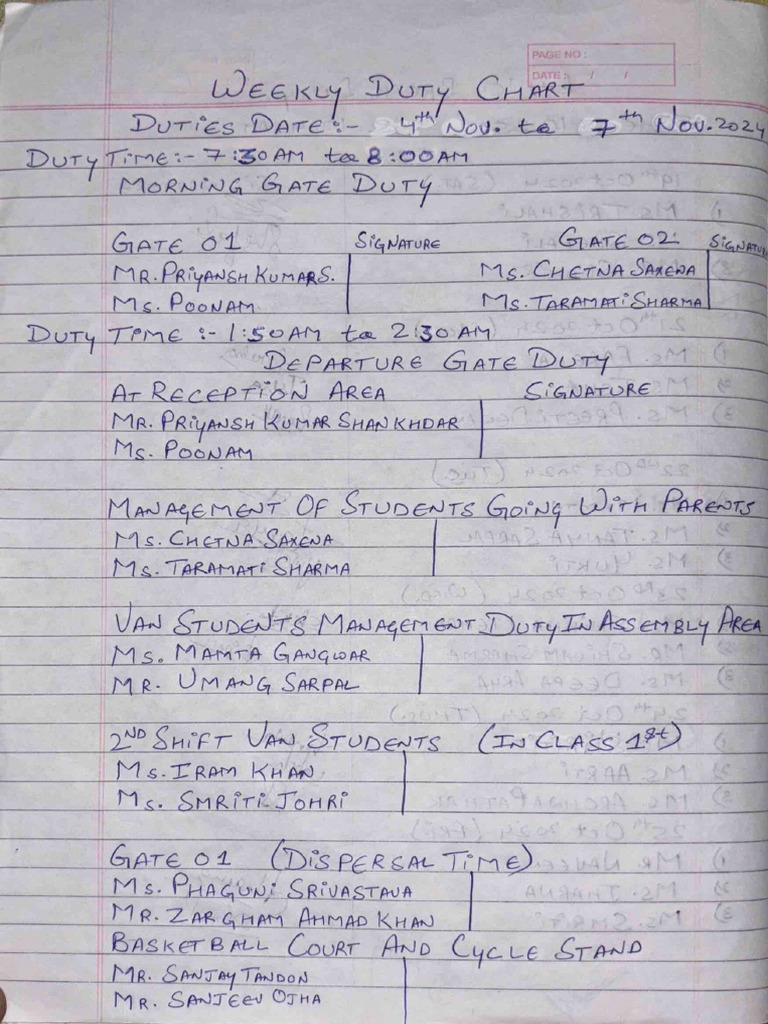 PAGE NO :
DATE : / /
WEEKLY DUTY CHART
DUTIES DATE :- 4th Nov. to 7th Nov. 2024
DUTY TIME :- 7:30AM to 8:00AM
MORNING GATE DUTY
GATE 01 SIGNATURE GATE 02 SIGNATURE
MR. PRIYANSH KUMAR S. MS. CHETNA SAXENA
MS. POONAM MS. TARAMATI SHARMA
DUTY TIME :- 1:50AM to 2:30AM
DEPARTURE GATE DUTY
AT RECEPTION AREA SIGNATURE
MR. PRIYANSH KUMAR SHANKHDAR
MS. POONAM
MANAGEMENT OF STUDENTS GOING WITH PARENTS
MS. CHETNA SAXENA
MS. TARAMATI SHARMA
VAN STUDENTS MANAGEMENT DUTY IN ASSEMBLY AREA
MS. MAMTA GANGWAR
MR. UMANG SARPAL
2ND SHIFT VAN STUDENTS (IN CLASS 1st)
MS. IRAM KHAN
MS. SMRITI JOHRI
GATE 01 (DISPERSAL TIME)
MS. PHAGUNI SRIVASTAVA
MR. ZARGHAM AHMAD KHAN
BASKETBALL COURT AND CYCLE STAND
MR. SANJAY TANDON
MR. SANJEEV OJHA